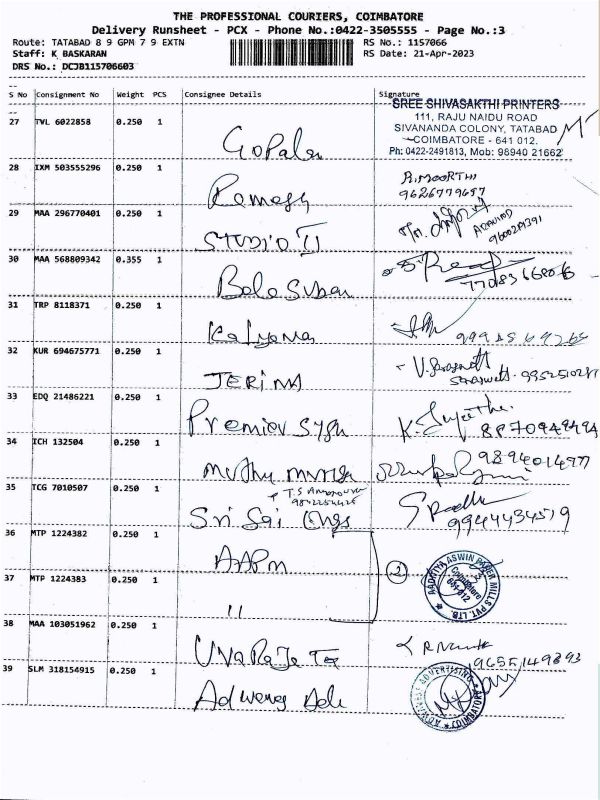 THE PROFESSIONAL COURIERS, COIMBATORE
Delivery Runsheet - PCX - Phone No.:0422-3505555 - Page No.:3
Route: TATABAD 8 9 GPM 7 9 EXTN
RS No.: 1157066
Staff: K BASKARAN
RS Date: 21-Apr-2023
DRS No.: DCJB115706603
S No Consignment No Weight PCS Consignee Details Signature
SREE SHIVASAKTHI PRINTERS
111, RAJU NAIDU ROAD
SIVANANDA COLONY, TATABAD
COIMBATORE - 641 012.
Ph: 0422-2491813, Mob: 98940 21662
27 TVL 6022858 0.250 1 Gopalan
28 IXM 503555296 0.250 1 Ramesh
R.MOORTHI
9626779657
29 MAA 296770401 0.250 1 STUDIO II
ARAVIND
30 MAA 568809342 0.355 1 Bala Suban
31 TRP 8118371 0.250 1 Kalyana
32 KUR 694675771 0.250 1 JERINA
V. Saraswathi
33 EDQ 21486221 0.250 1 Premier
K. Sujatha
8870949494
34 ICH 132504 0.250 1 Muthu
9894014977
35 TCG 7010507 0.250 1 Sri Sai
9944434519
36 MTP 1224382 0.250 1 AAPM
2
AADHITYA ASWIN PAPER MILLS PVT. LTD.
Coimbatore
641 012
37 MTP 1224383 0.250 1 "
38 MAA 103051962 0.250 1 Uva Raja
9655149893
39 SLM 318154915 0.250 1
ADVERTISING
COIMBATORE